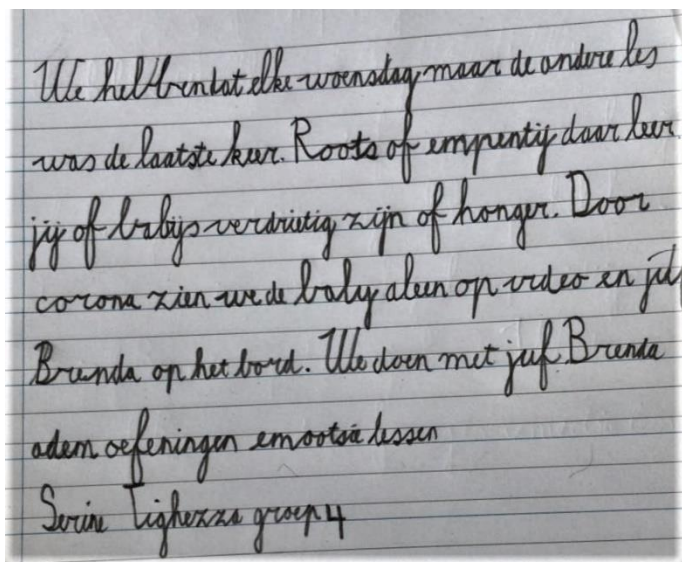 We hebben dat elke woensdag maar de andere les
was de laatste keer. Roots of empentij daar leer
jij of babijs verdrietig zijn of honger. Door
corona zien we de baby aleen op video en juf
Brenda op het bord. We doen met juf Brenda
adem oefeningen emootsie lessen
Serine Tighezza groep 4